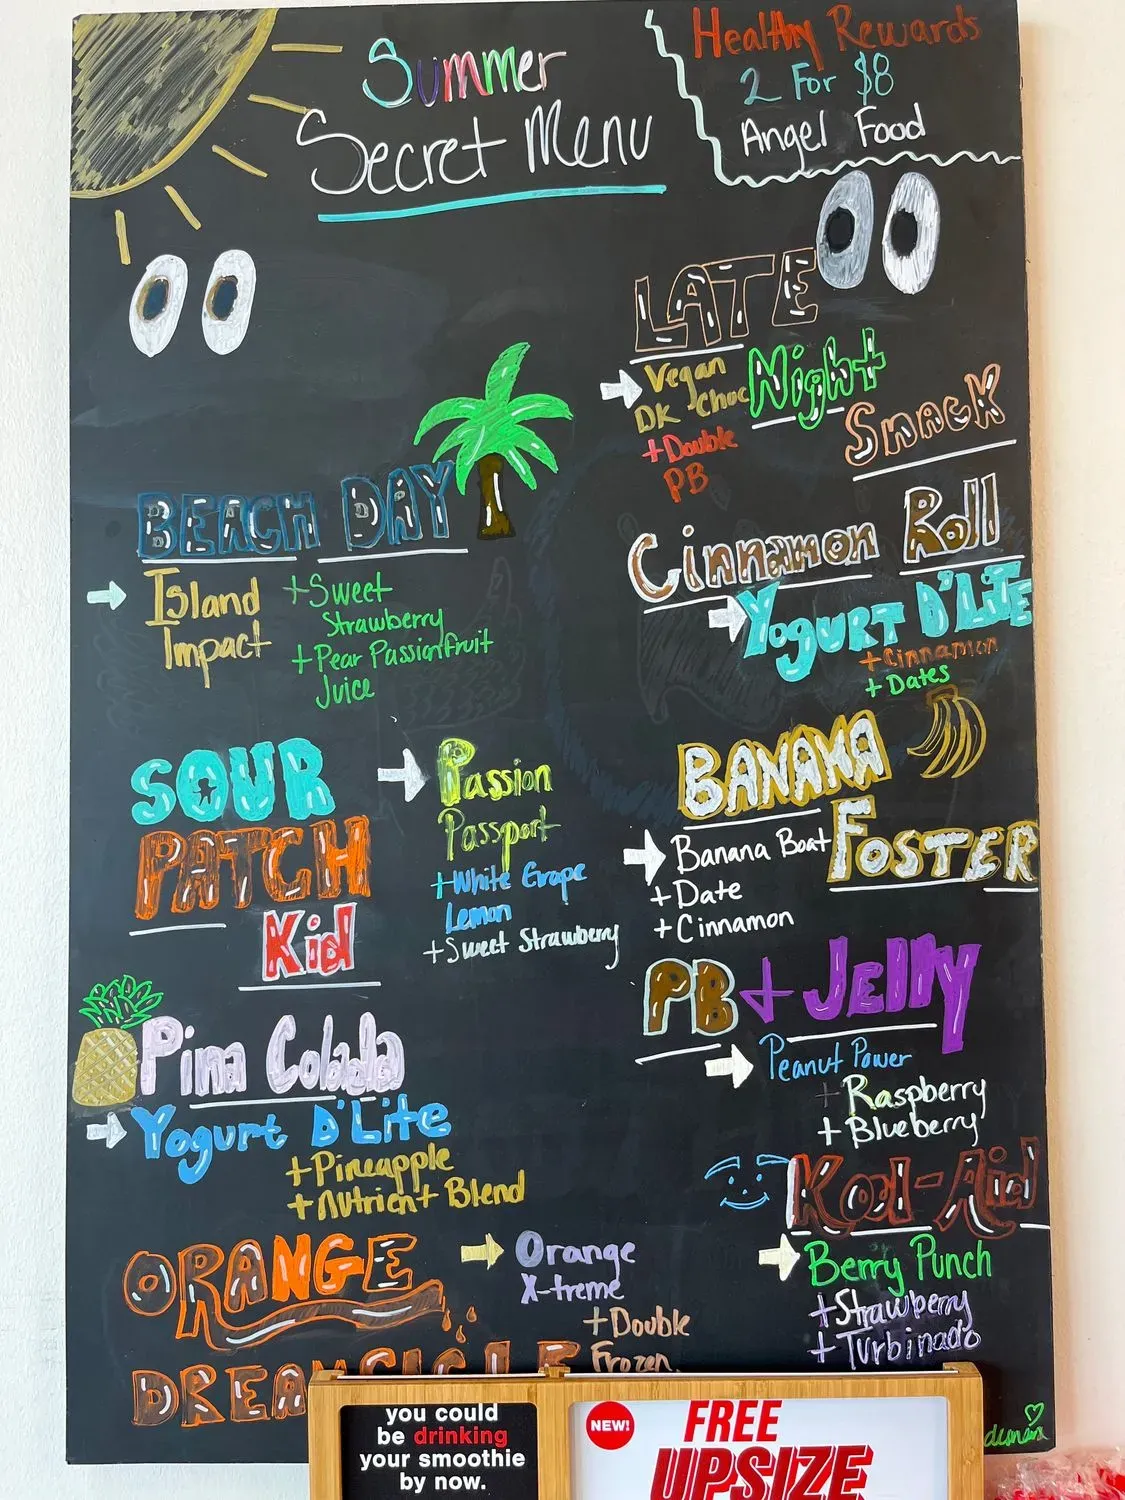 Summer
Secret Menu
Healthy Rewards
2 For $8
Angel Food
BEACH DAY
Island
Impact
+Sweet
Strawberry
+Pear Passionfruit
Juice
SOUR
PATCH
Kid
Passion
Passport
+White Grape
Lemon
+Sweet Strawberry
Pina Colada
Yogurt D'Lite
+Pineapple
+Nutrient Blend
ORANGE
DREAMCICLE
Orange
X-treme
+Double
Frozen
LATE
Night
Snack
Vegan
DK Choc
+Double
PB
Cinnamon Roll
Yogurt D'LiTE
+Cinnamon
+Dates
BANANA
FOSTER
Banana Boat
+Date
+Cinnamon
PB + Jelly
Peanut Power
+Raspberry
+Blueberry
Kool-Aid
Berry Punch
+Strawberry
+Turbinado
you could
be drinking
your smoothie
by now.
NEW!
FREE
UPSIZE